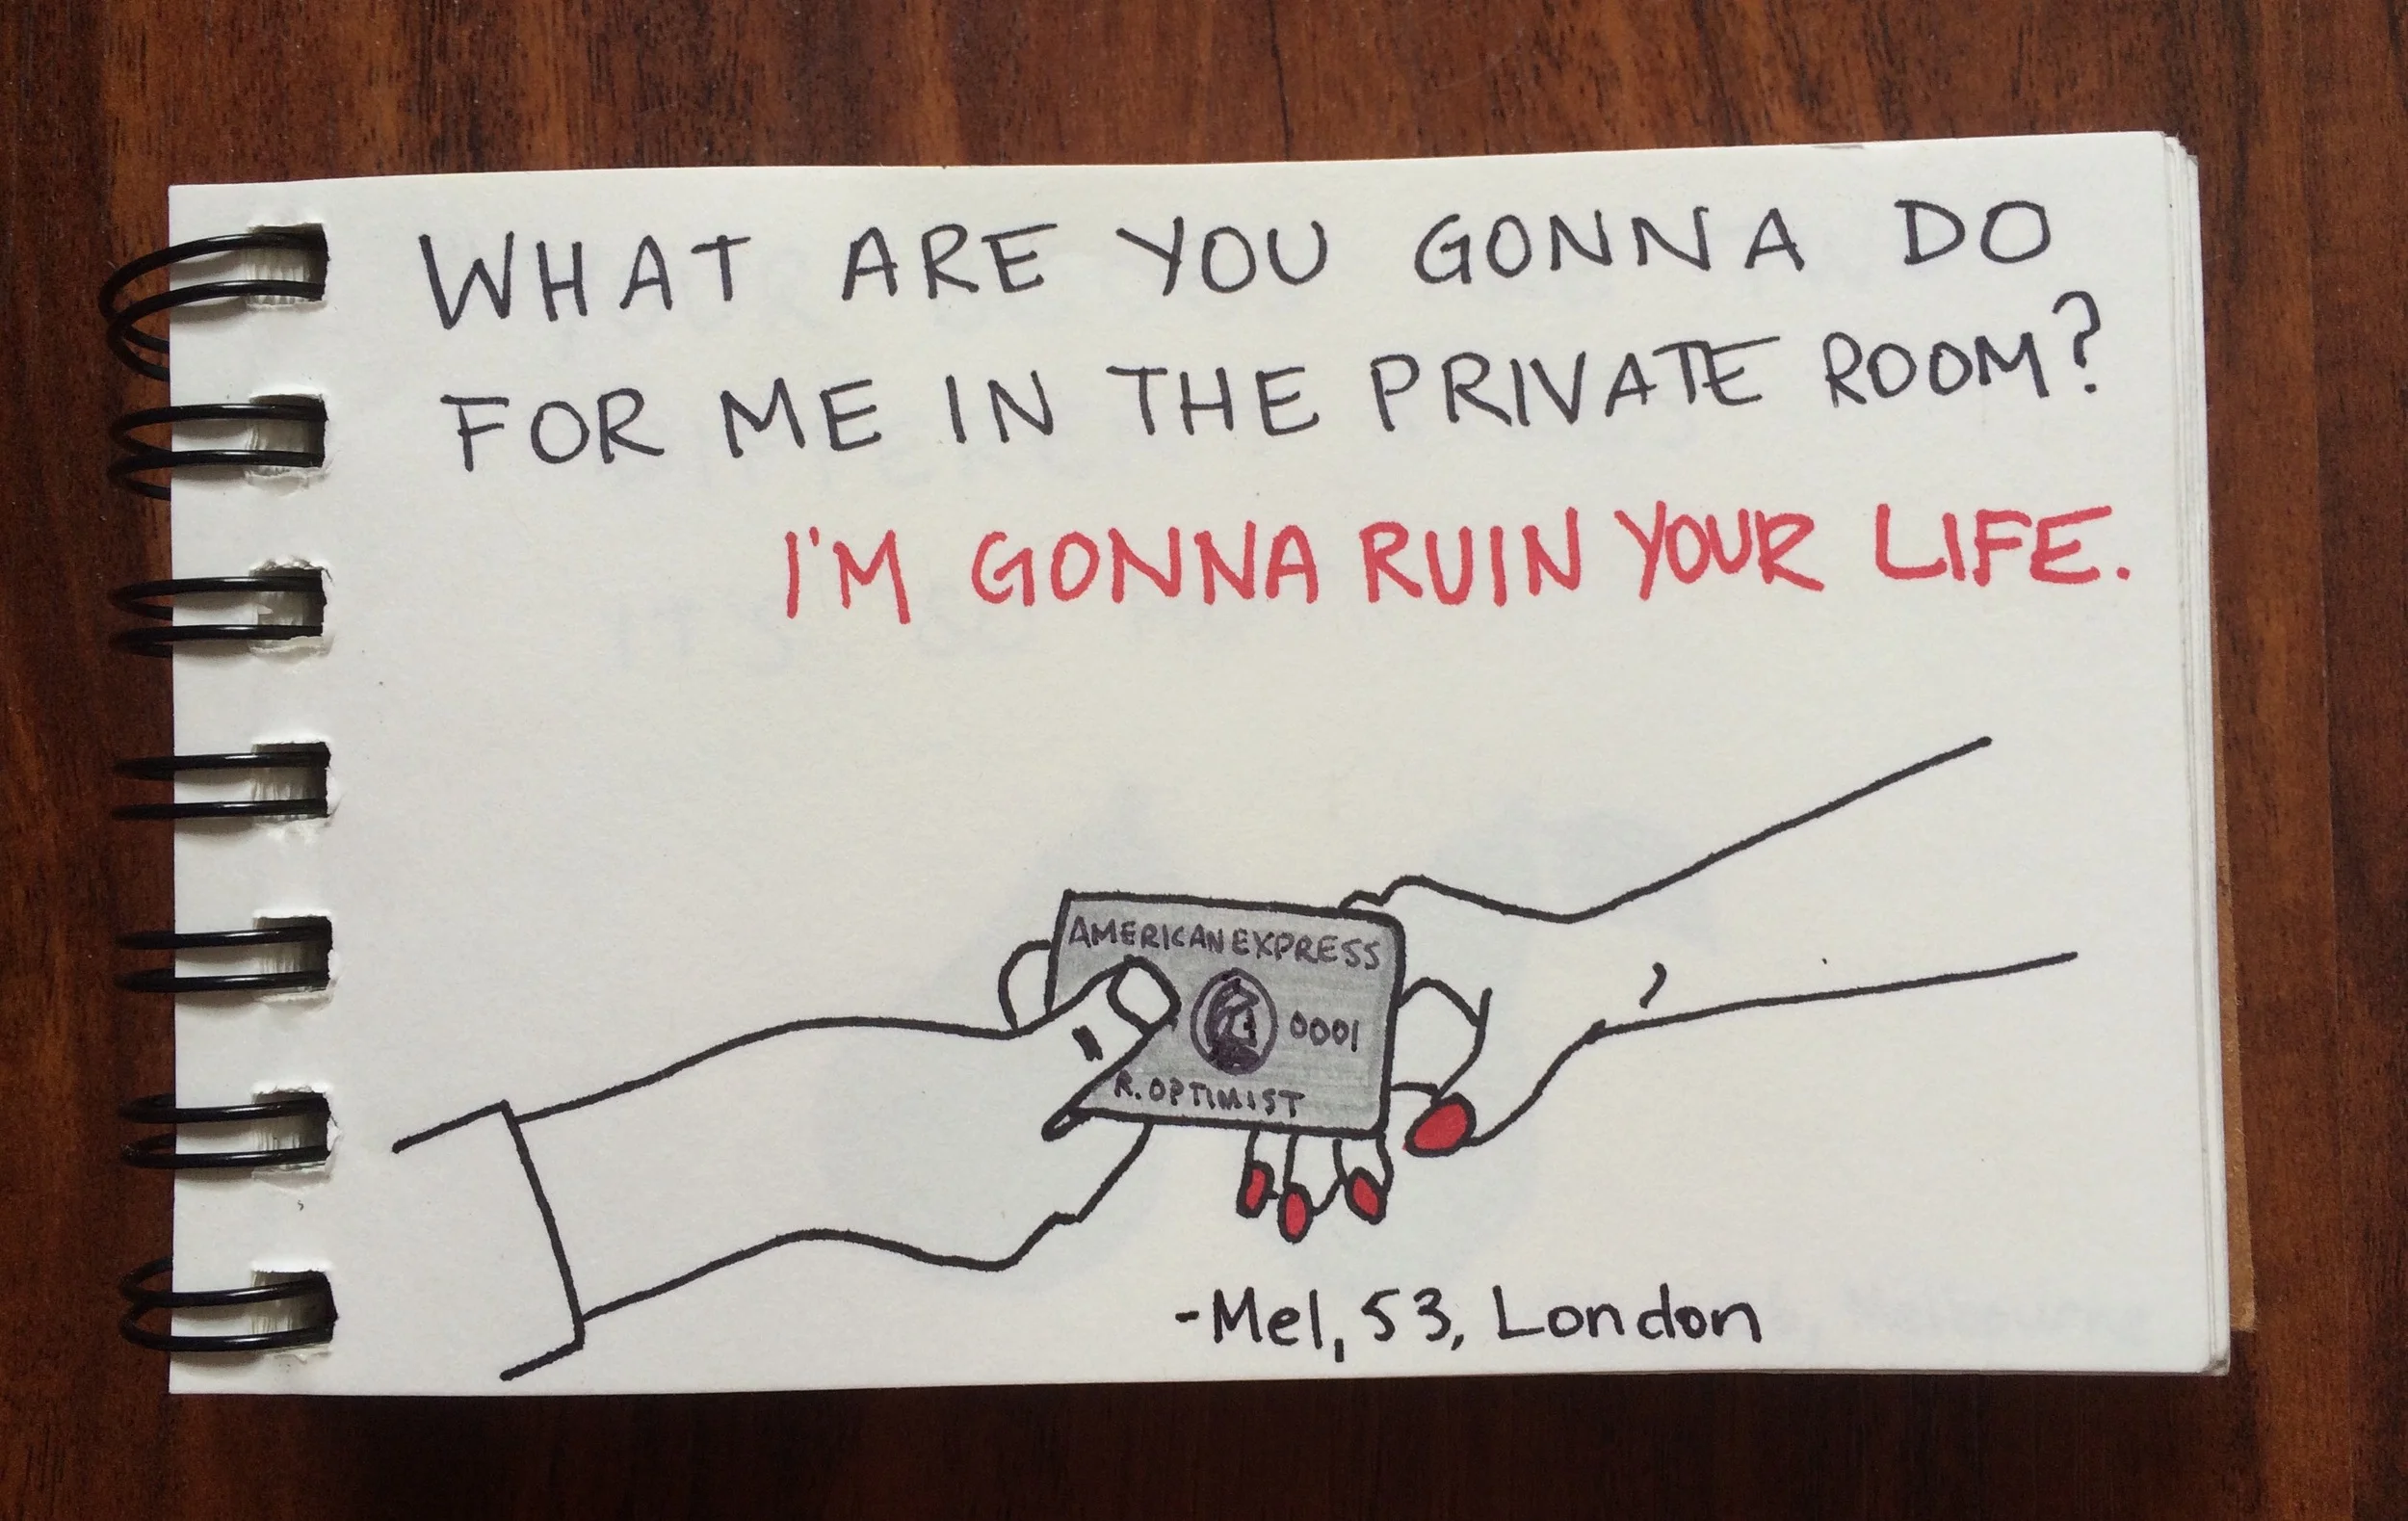 WHAT ARE YOU GONNA DO
FOR ME IN THE PRIVATE ROOM?
I'M GONNA RUIN YOUR LIFE.
AMERICAN EXPRESS
0001
R. OPTIMIST
-Mel, 53, London